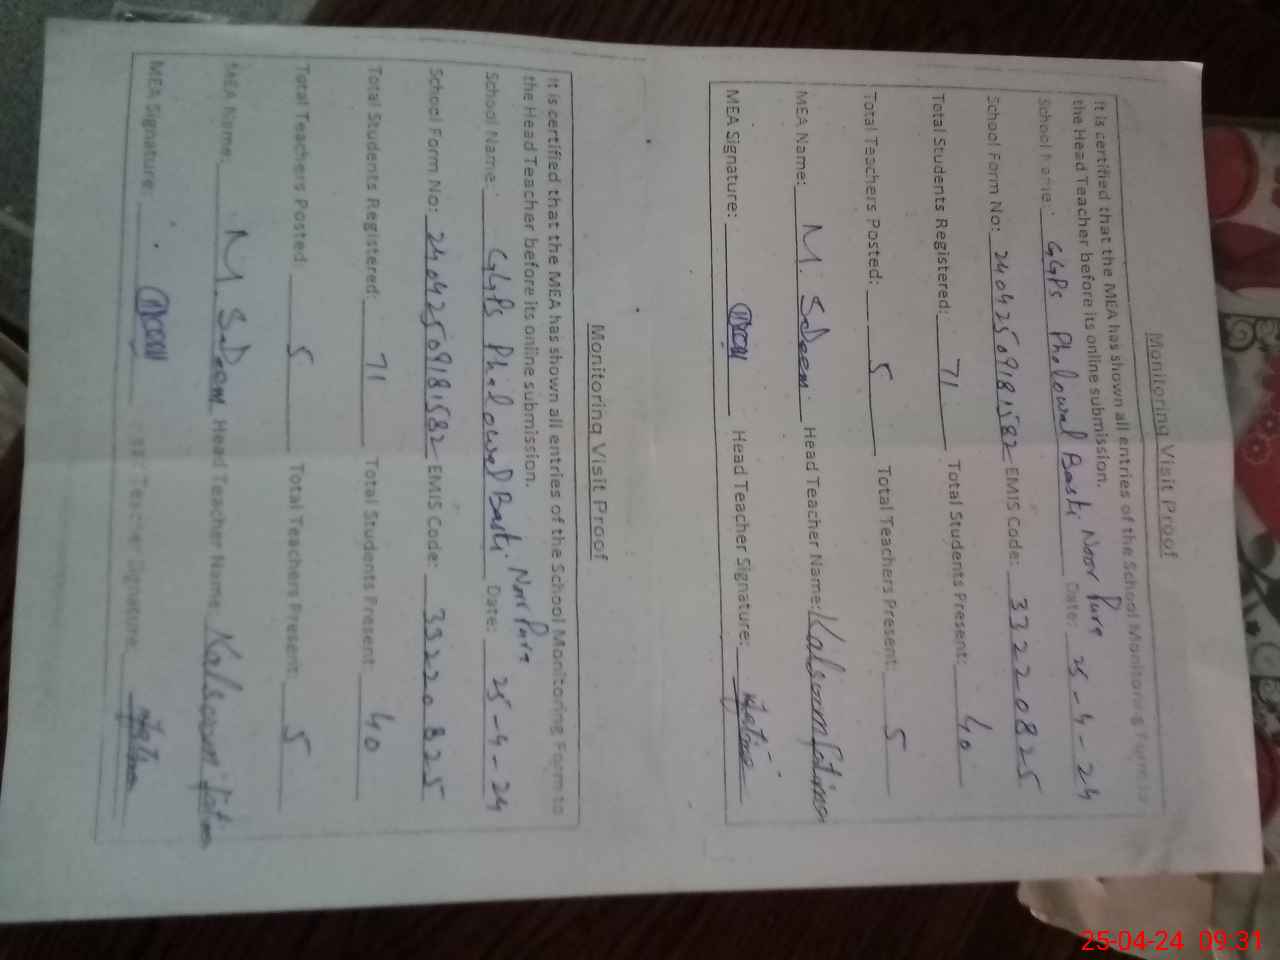 Monitoring Visit Proof
It is certified that the MEA has shown all entries of the School Monitoring Form to
the Head Teacher before its online submission.
School Name: GGPS Phalowal Basti Noor Pura Date: 25-4-24
School Form No: 24042509181582 EMIS Code: 33220825
Total Students Registered: 71 Total Students Present: 40
Total Teachers Posted: 5 Total Teachers Present: 5
MEA Name: M. Sadeem Head Teacher Name: Kalsoom fatima
MEA Signature: Head Teacher Signature: fatima
Monitoring Visit Proof
It is certified that the MEA has shown all entries of the School Monitoring Form to
the Head Teacher before its online submission.
School Name: GGPS Phalowal Basti Noor Pura Date: 25-4-24
School Form No: 24042509181582 EMIS Code: 33220825
Total Students Registered: 71 Total Students Present: 40
Total Teachers Posted: 5 Total Teachers Present: 5
MEA Name: M. Sadeem Head Teacher Name: Kalsoom fatima
MEA Signature: Head Teacher Signature: fatima
25-04-24 09:31